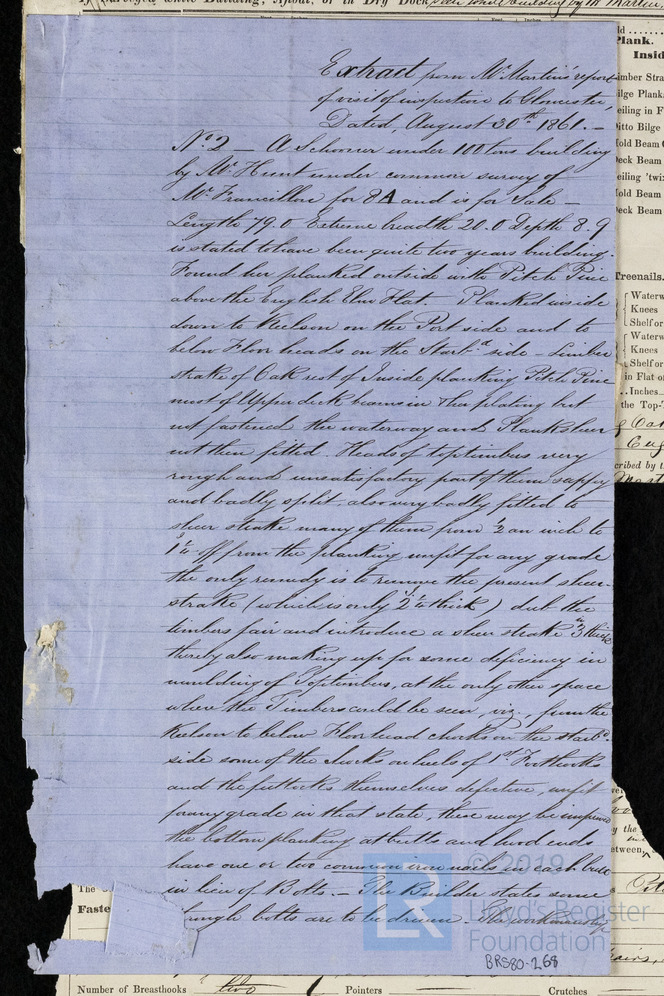 Surveyed while Building, Afloat, or in Dry Dock
Extract from Mr Martin's report
of visit of inspection to Gloucester,
Dated, August 30th 1861. —
No 2 — A Schooner under 100 tons building
by Mr Hunt under common survey of
Mr Francillon for 8A and is for Sale —
Length 79.0 Extreme breadth 20.0 Depth 8.9
is stated to have been quite two years building.
Found her planked outside with Pitch Pine
above the English Elm Flat. Planked inside
down to Keelson on the Port side and to
below Floor heads on the Starbd side — Limber
strake of Oak rest of Inside planking Pitch Pine
most of Upper deck beams in Their places but
not fastened. Her waterway and Planksheer
not then fitted. Heads of toptimbers very
rough and unsatisfactory part of them sappy
and badly split, also very badly fitted to
sheer strake many of them from 1/2 an inch to
1 3/4 off from the planking unfit for any grade
the only remedy is to remove the present sheer-
strake (which is only 2 1/4 thick) dub the
timbers fair and introduce a sheer strake 3 in thick
thereby also making up for some deficiency in
moulding of Toptimbers, at the only other space
where the Timbers could be seen, viz, from the
Keelson to below Floorhead chocks on the starbd
side some of the chocks on heels of 1st Futtocks
and the futtocks themselves defective, unfit
for any grade in that state, these may be
the bottom planking at butts and hood ends
have one or two common iron nails in each butt
in lieu of Bolts — The Builder states some
through bolts are to be driven. The workmanship
© 2019
Lloyd's Register
Foundation
LR
BRS80-268
Plank.
Insid
imber Stra
ilge Plank
eiling in F
Ditto Bilge
Hold Beam
Deck Beam
eiling 'twix
Hold Beam
Deck Beam
Treenails.
Waterw
Knees
Shelf or
Waterw
Knees
Shelf or
in Flat o
Inches
the Top-T
cribed by t
Fasten
Number of Breasthooks two Pointers Crutches